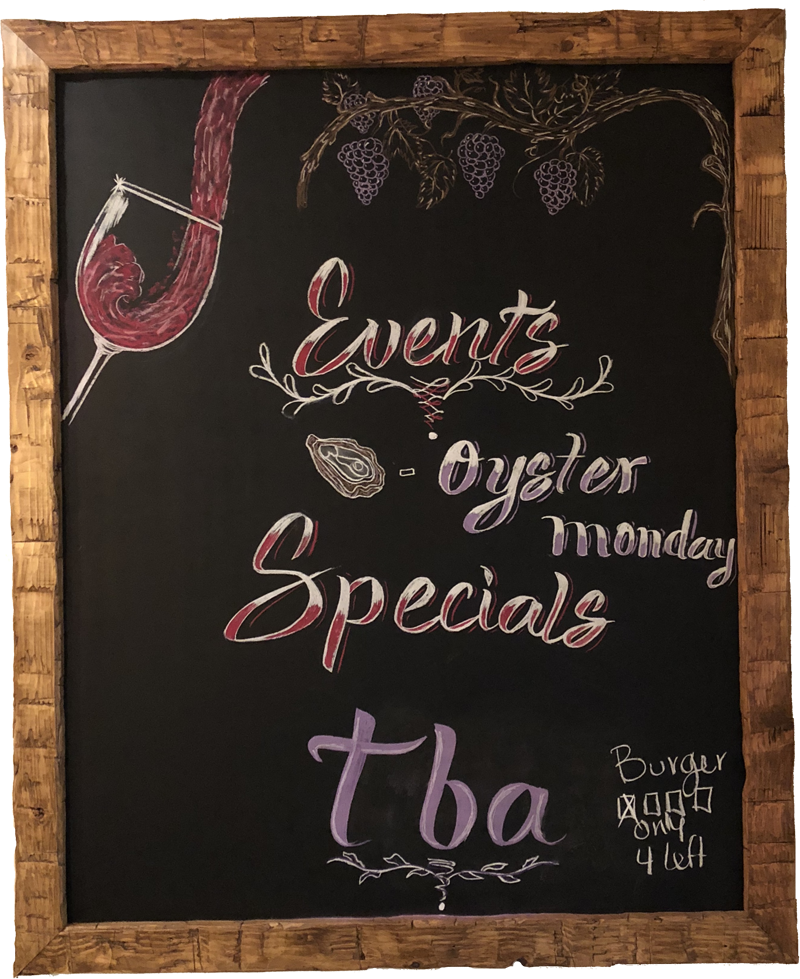 Events
- Oyster
monday
Specials
tba
Burger
only
4 left